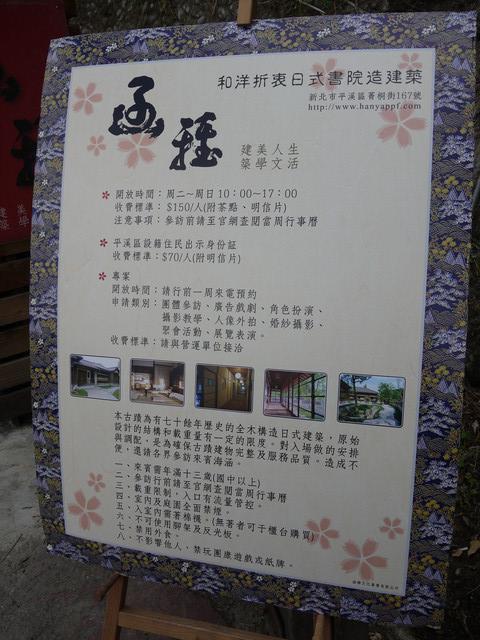 函雅
和洋折衷日式書院造建築
新北市平溪區菁桐街167號
http://www.hanyappf.com
建美人生
築學文活
開放時間：周二～周日 10：00～17：00
收費標準：$150/人(附茶點、明信片)
注意事項：參訪前請至官網查閱當周行事曆
平溪區設籍住民出示身份証
收費標準：$70/人(附明信片)
專案
開放時間：請行前一周來電預約
申請類別：團體參訪、廣告戲劇、角色扮演、
攝影教學、人像外拍、婚紗攝影、
聚會活動、展覽表演。
收費標準：請與營運單位接洽
本古蹟為有七十餘年歷史的全木構造日式建築，原始
設計的結構和載重量有一定的限度。對入場做的安排
與調配，是為確保古蹟建物完整及服務品質。造成不
便，還請各界參訪來賓海涵。
一、來賓需年滿十三歲(國中以上)
二、參訪前請至官網查閱當周行事曆
三、載重限制，入口有流量管控。
四、室內及庭園全面禁煙。
五、入室內需著棉襪。(無著者可于櫃台購買)
六、不可使用腳架及反光板。
七、禁用外食。
八、不影響他人，禁玩團康遊戲或紙牌。